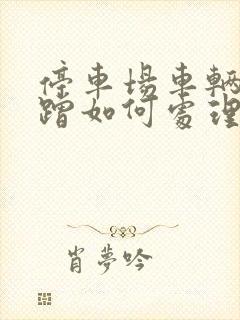 停車場車輛
蹭如何處理
肖夢吟